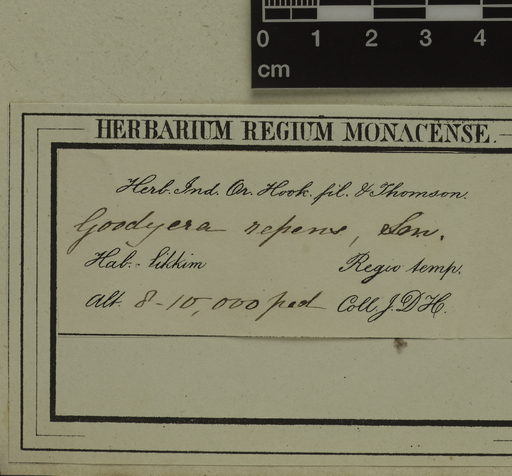 0 1 2 3 4
cm
HERBARIUM REGIUM MONACENSE.
Herb. Ind. Or. Hook. fil. & Thomson.
Goodyera repens,
Hab.- Sikkim Regio temp.
Alt. 8-10,000 ped Coll J. D H.